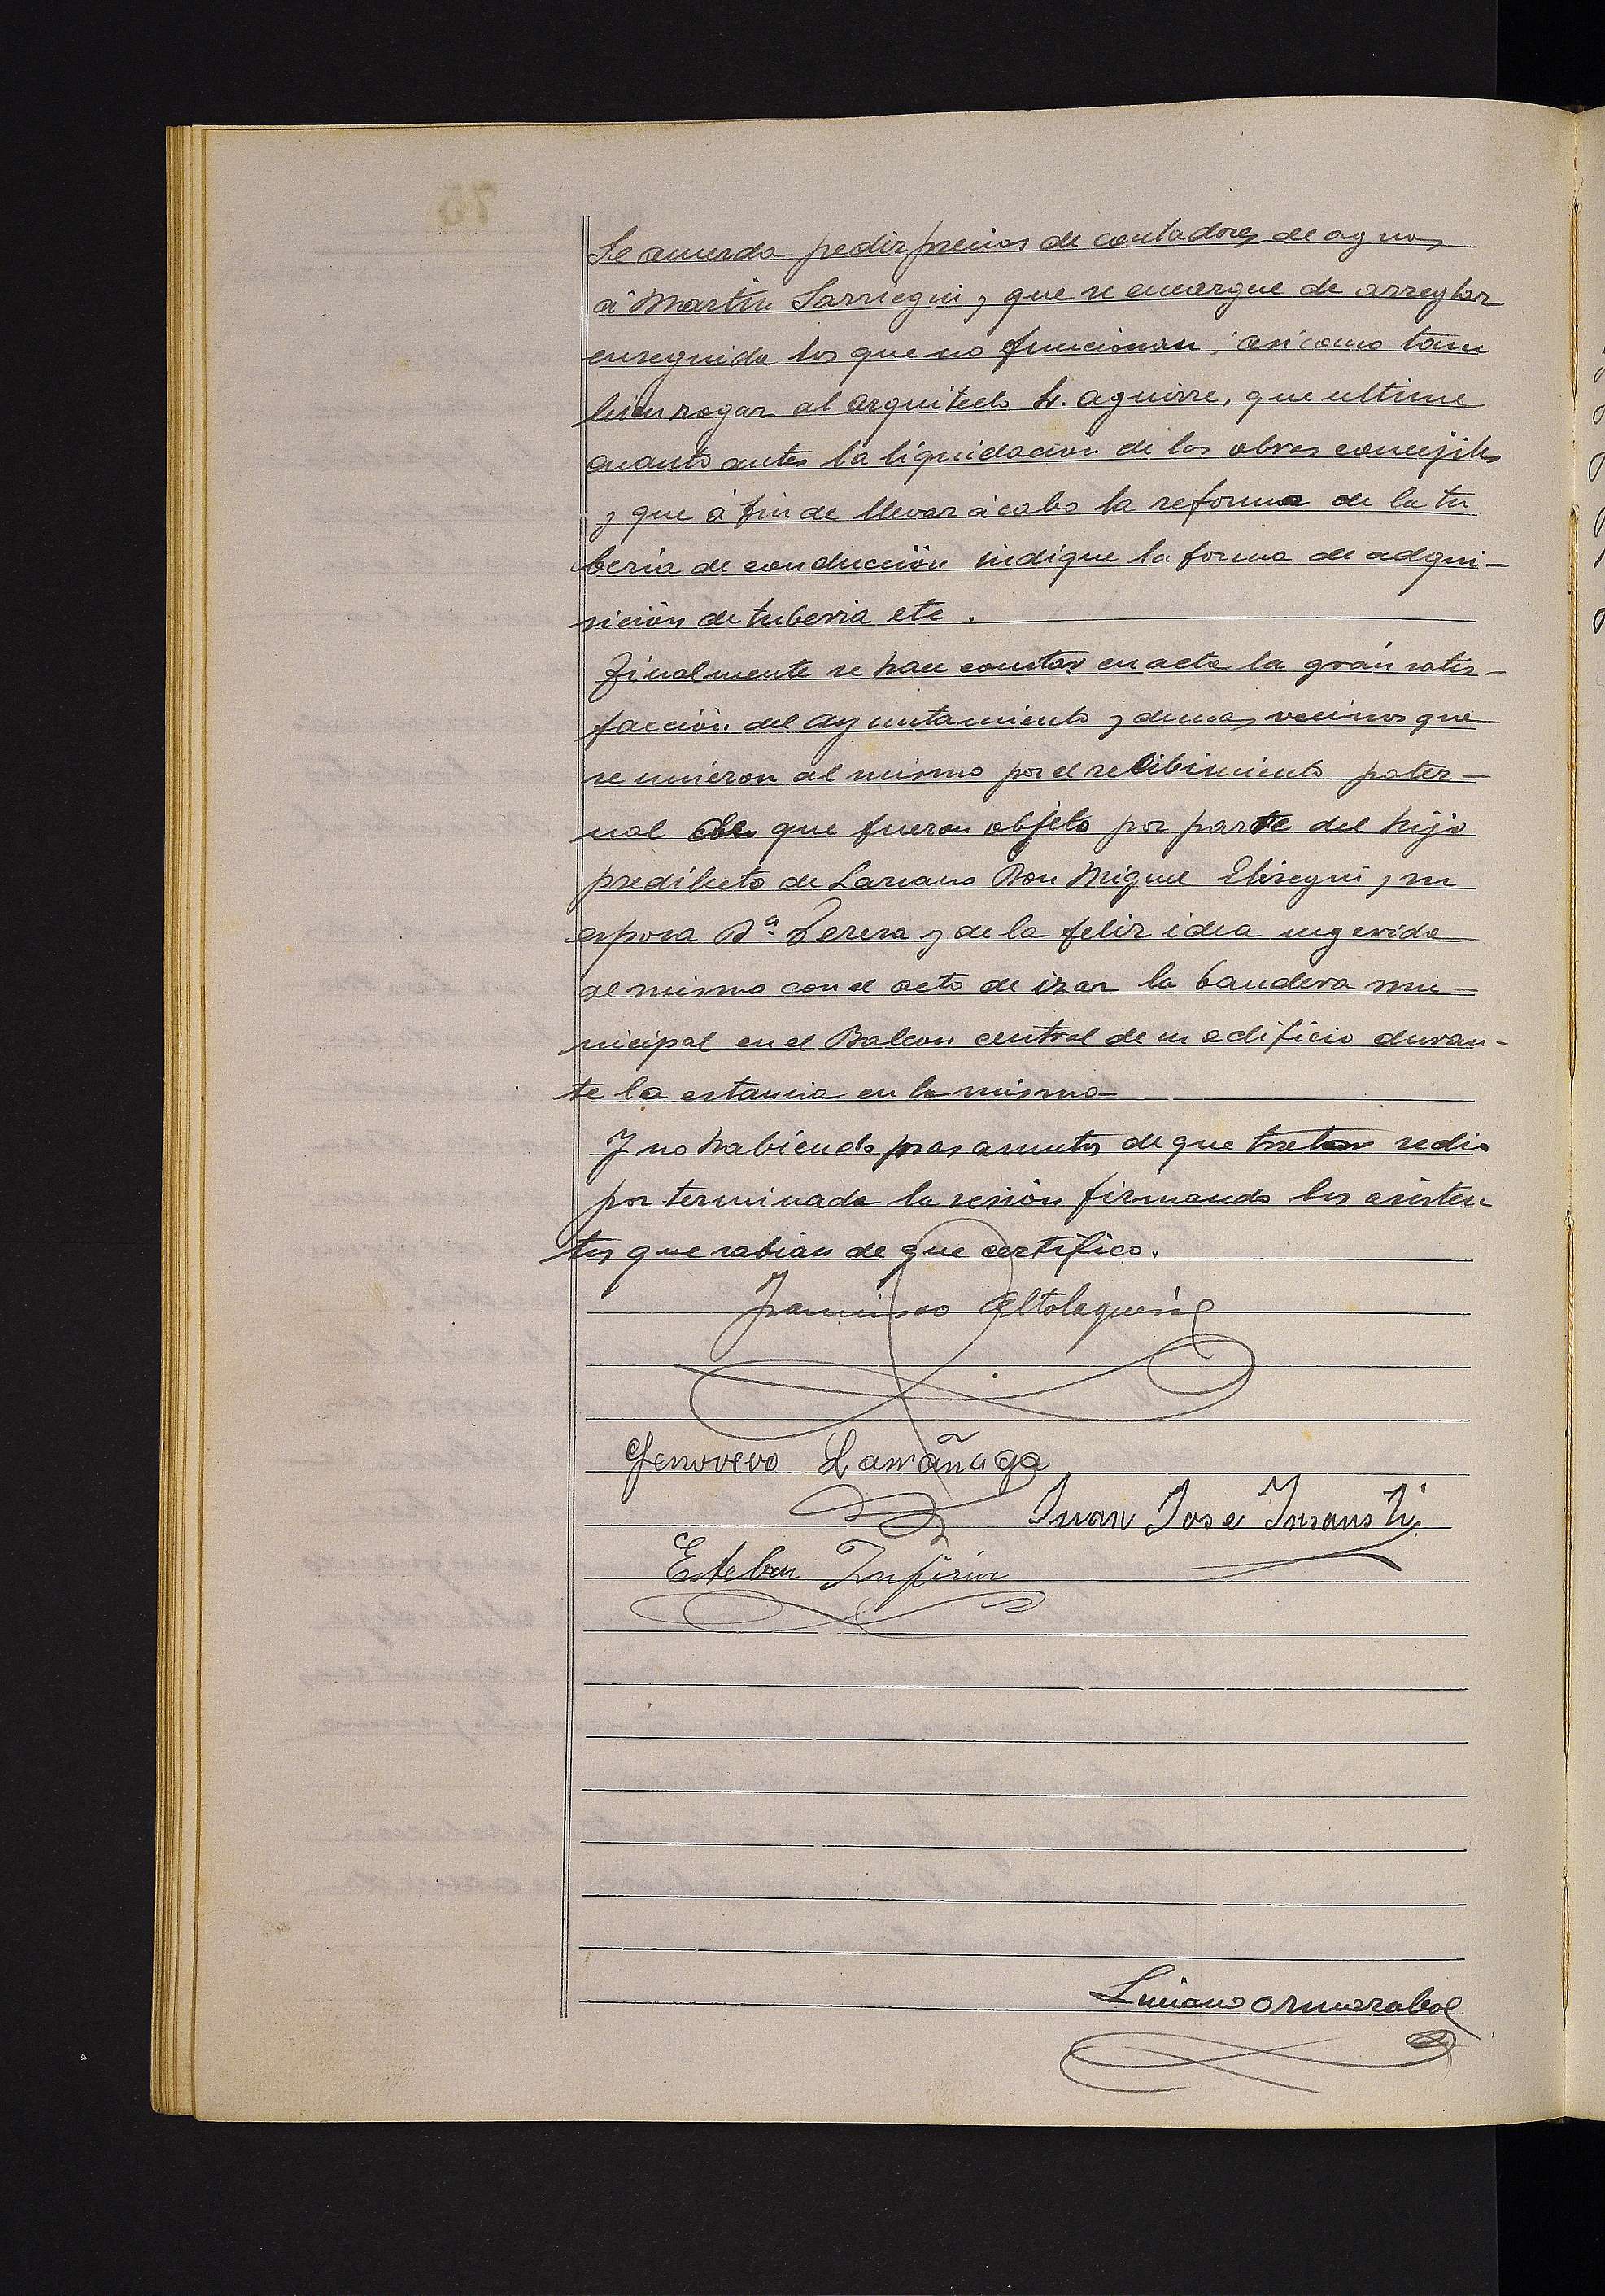 Se acuerda pedir precios de contadores de aguas
á Martin Sarriegui y que se encargue de arreglar
enseguida los que no funcionan, asi como tam
bien rogar al arquitecto Sr. Aguirre, que ultime
cuanto antes la liquidacion de las obras concejiles
y que á fin de llevar á cabo la reforma de la tu
beria de conducción indique la forma de adqui-
sición de tuberia etc.
Finalmente se hace constar en acta la grán satis-
facción del Ayuntamiento y demas vecinos que
se unieron al mismo por el recibimiento pater-
nal de que fueron objeto por parte del hijo
predilecto de Lazcano Don Miguel Elizegui y su
esposa Dª. Teresa y de la feliz idea sugerida
al mismo con el acto de izar la bandera mu-
nicipal en el Balcon central de su edificio duran-
te la estancia en la misma
Y no habiendo mas asuntos de que tratar se dio
por terminada la sesión firmando los asisten
tes que sabian de que certifico.
Francisco Altolaguirre
Genovevo Larrañaga
Juan José Insausti
Esteban
Luciano